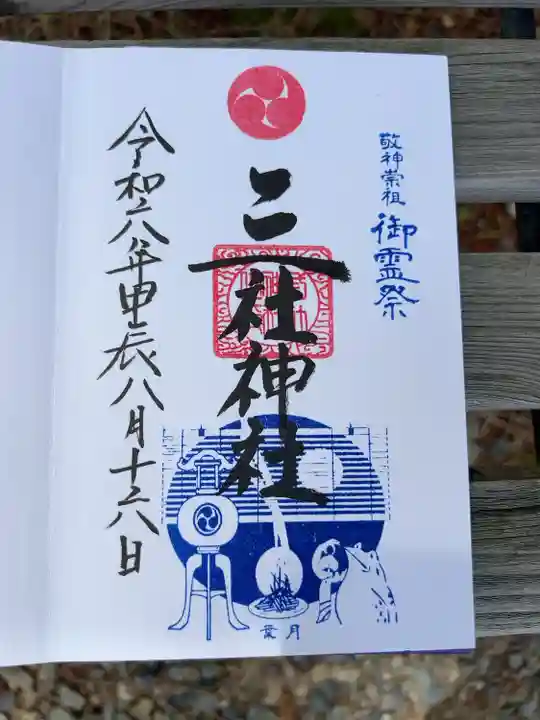 敬神崇祖
御霊祭
三社神社
令和六年甲辰八月十六日
葉月